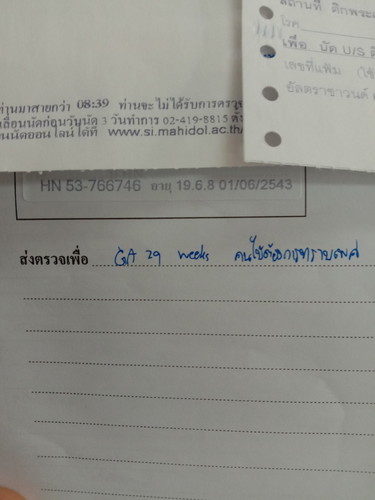 สถานที่ ตึกพระ
โรค
เพื่อ นัด U/S
เลขที่แฟ้ม (ใช้
อัลตราซาวนด์
ท่านมาสายกว่า 08:39 ท่านจะไม่ได้รับการตรวจ
เลื่อนนัดก่อนวันนัด 3 วันทำการ 02-419-8815
นนัดออนไลน์ได้ที่ www.si.mahidol.ac.th/
HN 53-766746 อายุ 19.6.8 01/06/2543
ส่งตรวจเพื่อ GA 29 weeks คนไข้ต้องการทราบเพศ